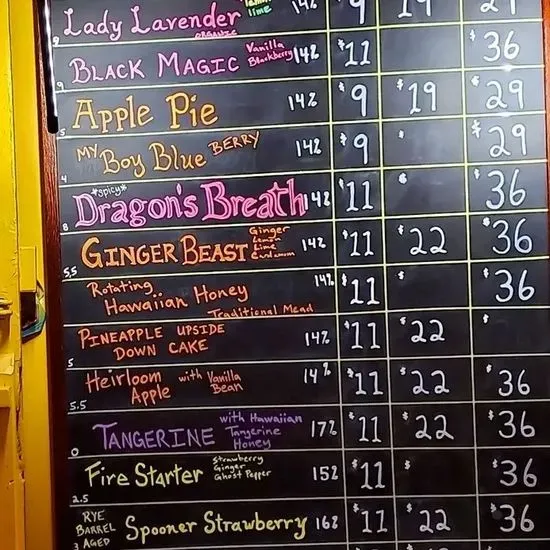 lime
Lady Lavender 14% $9 19 29
ORGANIC
9
BLACK MAGIC Vanilla Blackberry 14% $11 $36
9
Apple Pie 14% $9 $19 $29
5
MY Boy Blue BERRY 14% $9 $ $29
4
*spicy*
Dragon's Breath 14% $11 $ $36
8
GINGER BEAST Ginger Lemon Lime Cardamom 14% $11 $22 $36
5.5
Rotating 14%
Hawaiian Honey $11 $ $36
Traditional Mead
PINEAPPLE UPSIDE 14% $11 $22 $
DOWN CAKE
5
Heirloom with Vanilla 14% $11 $22 $36
Apple Bean
5.5
TANGERINE with Hawaiian Tangerine Honey 17% $11 $22 $36
0
Fire Starter Strawberry Ginger Ghost Pepper 15% $11 $ $36
2.5
RYE
BARREL Spooner Strawberry 16% $11 $22 $36
3 AGED